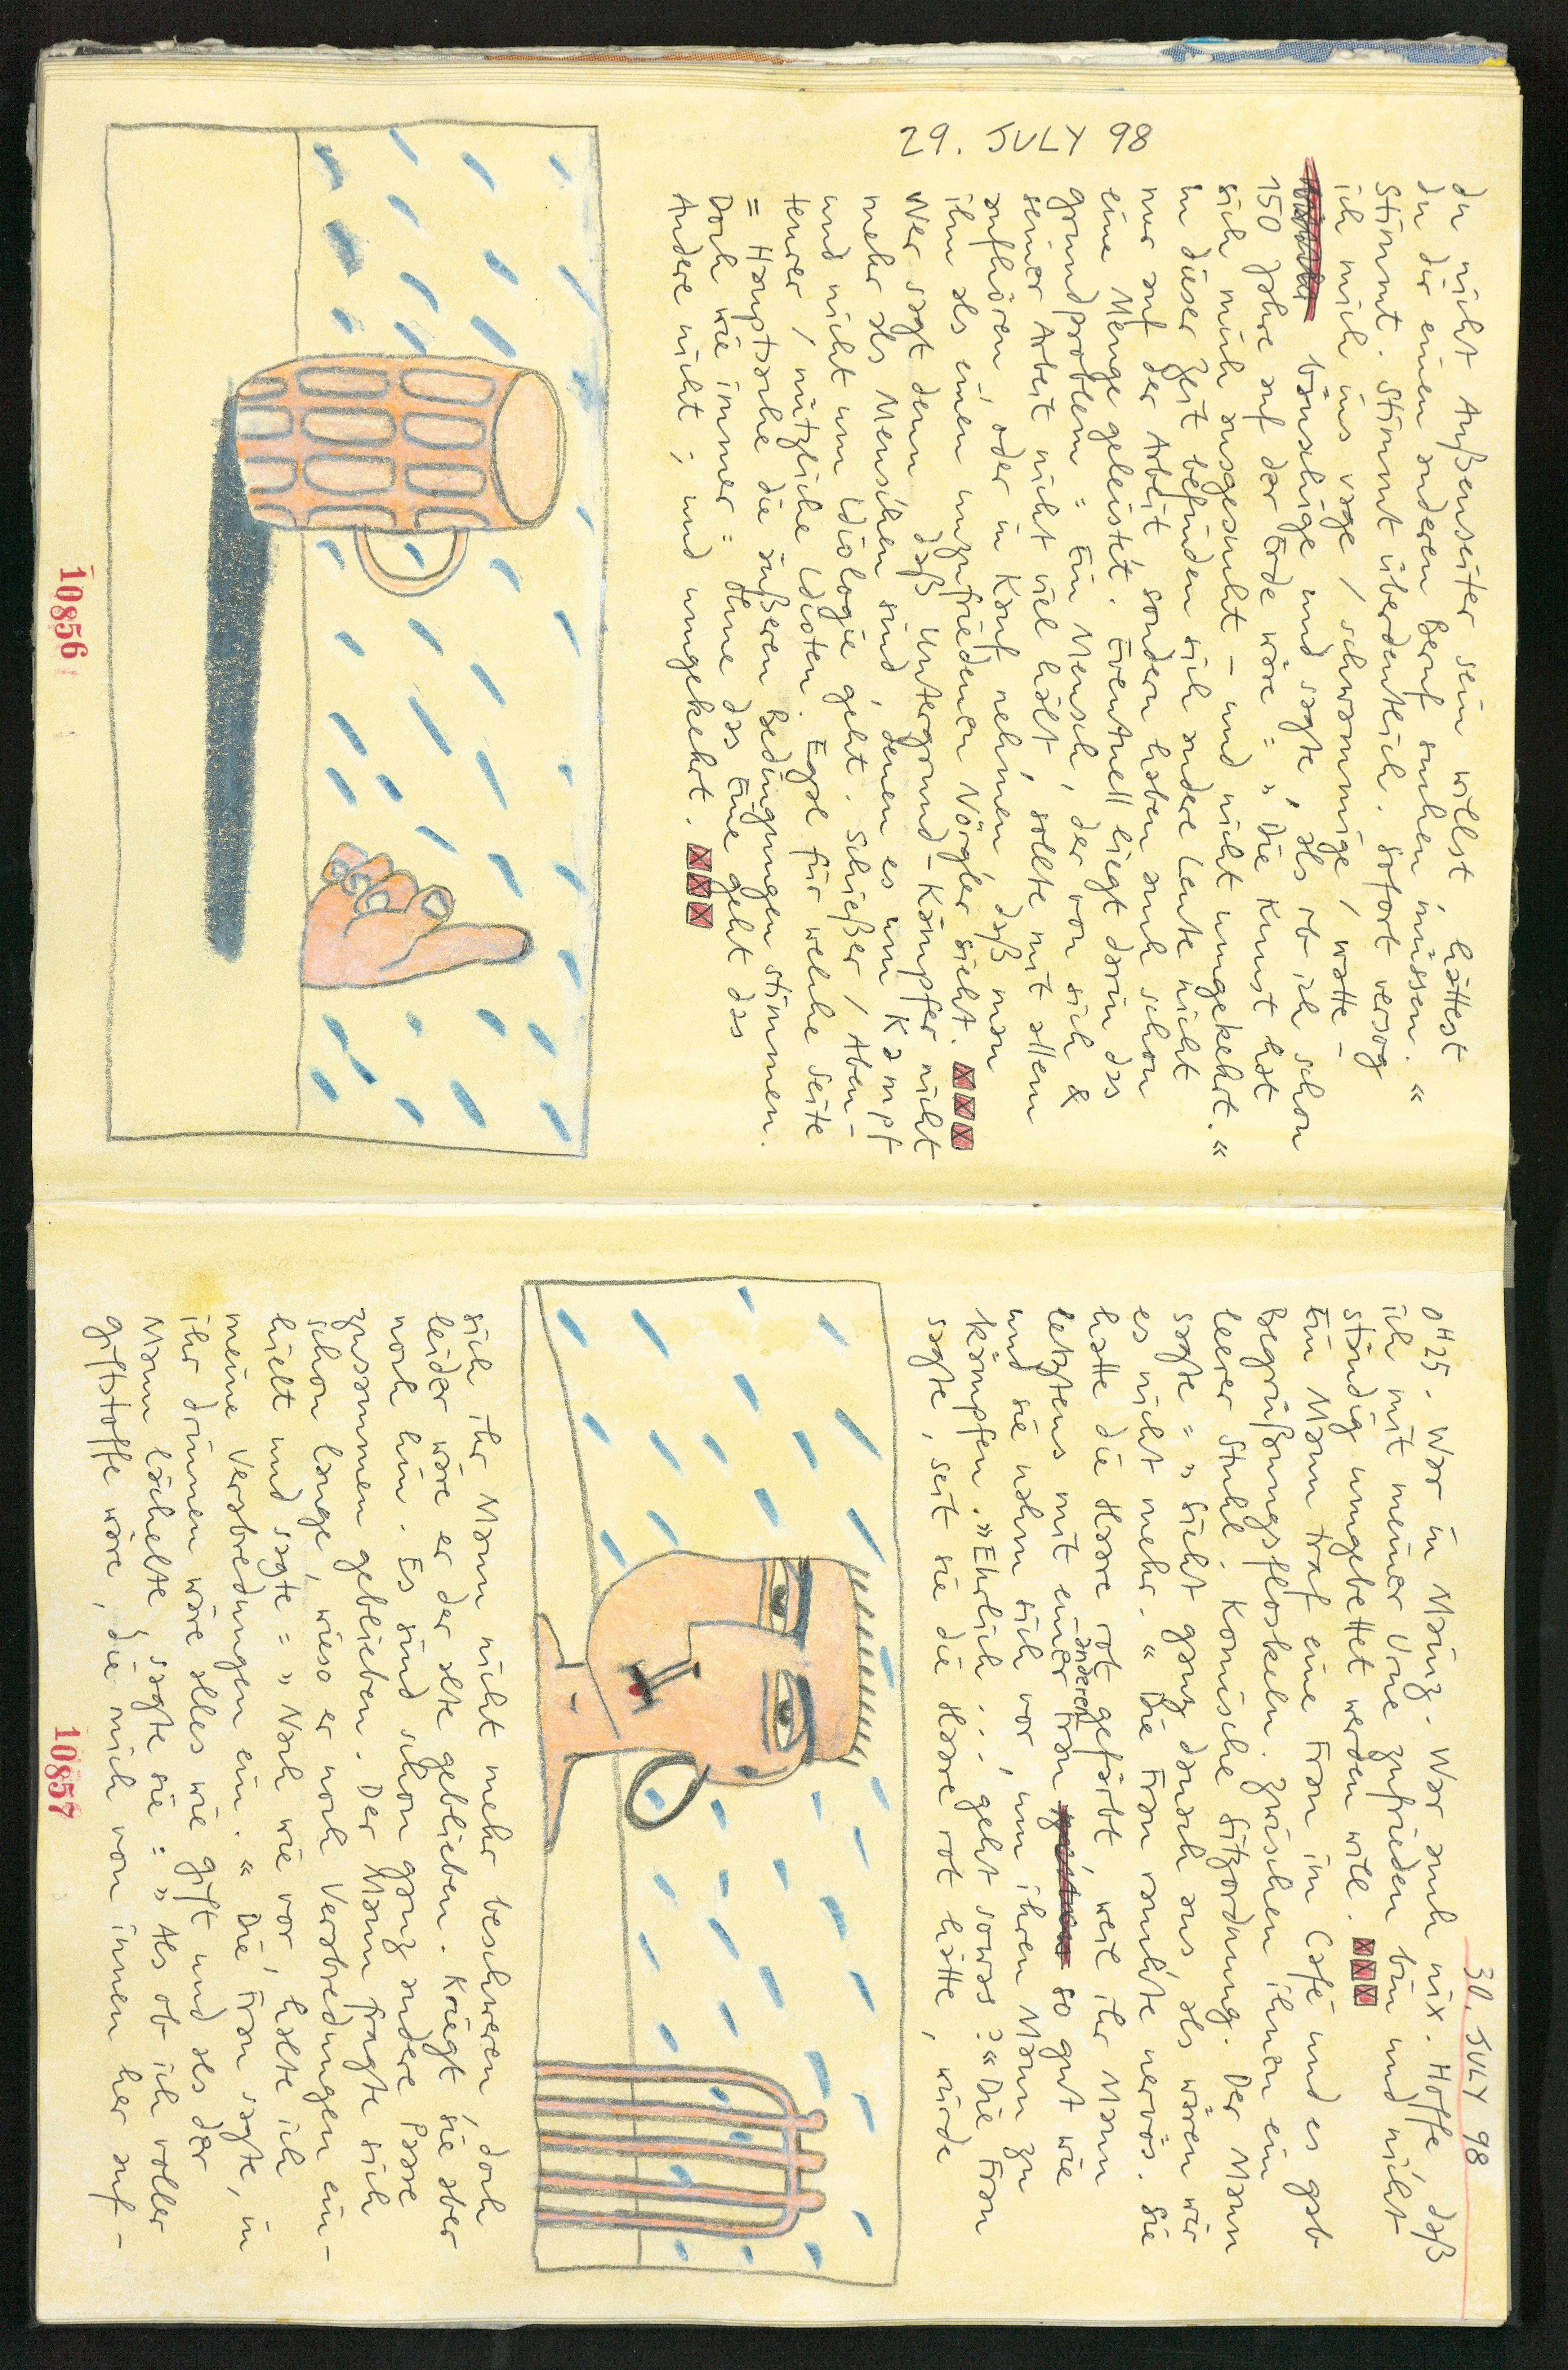 29. JULY 98
du nicht Außenseiter sein willst, hättest
du dir einen anderen Beruf suchen müssen."
Stimmt. Stimmt überdeutlich. Sofort versag
ich mich ins vage / schwammige / watte-
bauschige und sagte, als ob ich schon
150 Jahre auf der Erde wäre = „Die Kunst hat
sich mich ausgesucht – und nicht umgekehrt."
In dieser Zeit befinden sich andere Leute nicht
nur auf der Arbeit, sondern haben auch schon
eine Menge geleistet. Eventuell liegt darin das
Grundproblem = Ein Mensch, der von sich &
seiner Arbeit nicht viel hält, sollte mit allem
aufhören, oder in Kauf nehmen, daß man
ihn als einen unzufriedenen Nörgler sieht.
Wer sagt denn, daß Untergrund-Kämpfer nicht
mehr als Menschen sind, denen es um Kampf
und nicht um Idiologie geht. Schießer / Aben-
teurer / nützliche Idioten. Egal für welche Seite
= Hauptsache die äußeren Bedingungen stimmen.
Doch wie immer = Ohne das Eine geht das
Andere nicht, und umgekehrt.
10856
30. JULY 98
0H25. War in Mainz. War auch nix. Hoffe, daß
ich mit meiner Urne zufrieden bin und nicht
ständig umgebettet werden will.
Ein Mann traf eine Frau im Café und es gab
Begrüßungsfloskeln. Zwischen ihnen ein
leerer Stuhl. Komische Sitzordnung. Der Mann
sagte = „Sieht ganz danach aus als wären wir
es nicht mehr." Die Frau rauchte nervös. Sie
hatte die Haare rot gefärbt, weil ihr Mann
letztens mit einer anderen Frau so gut wie
und sie nahm sich vor, um ihren Mann zu
kämpfen. „Ehrlich ... geht sowas?" Die Frau
sagte, seit sie die Haare rot hätte, würde
sich ihr Mann nicht mehr beschweren, doch
leider wäre er der alte geblieben. Kriegt sie aber
noch hin. Es sind schon ganz andere Paare
zusammen geblieben. Der Mann fragte sich
schon lange, wieso er noch Verabredungen ein-
hielt und sagte = „Nach wie vor, halte ich
meine Verabredungen ein." Die Frau sagte, in
ihr drinnen wäre alles wie Gift und als der
Mann lächelte, sagte sie = „Als ob ich voller
Giftstoffe wäre, die mich von innen her auf-
10857